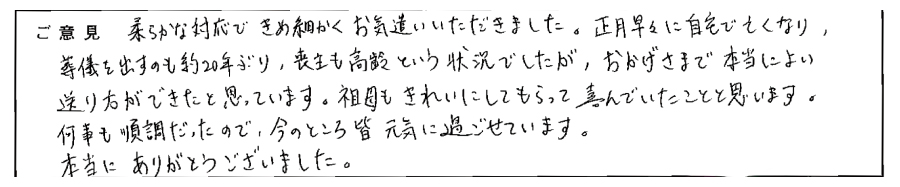 ご意見 柔らかな対応できめ細かくお気遣いいただきました。正月早々に自宅で亡くなり，
葬儀を出すのも約20年ぶり，喪主も高齢という状況でしたが，おかげさまで本当によい
送り方ができたと思っています。祖母もきれいにしてもらって喜んでいたことと思います。
何事も順調だったので，今のところ皆元気に過ごせています。
本当にありがとうございました。